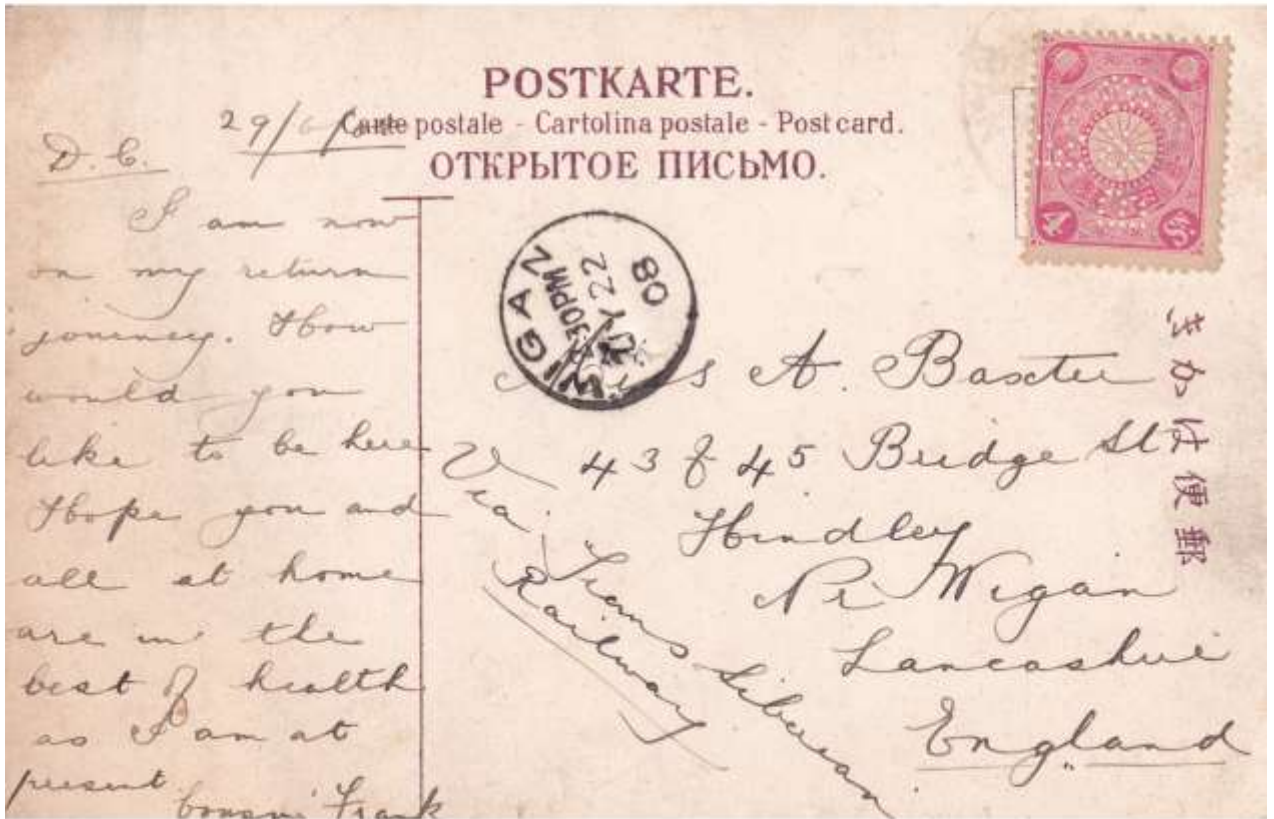 POSTKARTE.
Carte postale - Cartolina postale - Post card.
ОТКРЫТОЕ ПИСЬМО.
D.C. 29/6/
I am now
on my return
journey. How
would you
like to be here
Hope you and
all at home
are in the
best of health
as I am at
present
Cousin Frank
WIGAN
30PM
JY 22
08
Miss A. Baxter
43 & 45 Bridge St
Hindley
Nr Wigan
Lancashire
England
Via Trans Siberian
Railway
郵便はかき
4